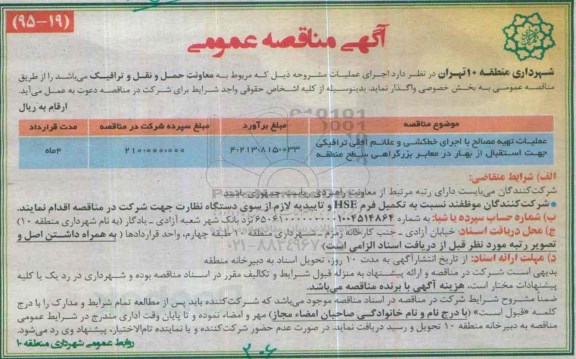 (۹۵-۱۹)
آگهی مناقصه عمومی
شهرداری منطقه ۱۰ تهران در نظر دارد اجرای عملیات مشروحه ذیل که مربوط به معاونت حمل و نقل و ترافیک می‌باشد را از طریق
مناقصه عمومی به بخش خصوصی واگذار نماید. بدینوسیله از کلیه اشخاص حقوقی واجد شرایط برای شرکت در مناقصه دعوت به عمل می‌آید.
ارقام به ریال
موضوع مناقصه مبلغ برآورد مبلغ سپرده شرکت در مناقصه مدت قرارداد
عملیات تهیه مصالح با اجرای خطکشی و علائم افقی ترافیکی
جهت استقبال از بهار در معابر بزرگراهی سطح منطقه
۴۰۲۱۳۰۸۱۵۰۰۳۳ ۲۱۰۰۰۰۰۰۰ ۲ماه
الف) شرایط متقاضی:
شرکت‌کنندگان می‌بایست دارای رتبه مرتبط از معاونت راهبردی ریاست جمهوری باشند
● شرکت‌کنندگان موظفند نسبت به تکمیل فرم HSE و تاییدیه لازم از سوی دستگاه نظارت جهت شرکت در مناقصه اقدام نمایند.
ب) شماره حساب سپرده یا شبا: به شماره نزد بانک شهر شعبه آزادی - یادگار (به نام شهرداری منطقه ۱۰)
ج) محل دریافت اسناد: خیابان آزادی - جنب کارخانه - شهرداری منطقه ۱۰ طبقه چهارم، واحد قراردادها (به همراه داشتن اصل و
تصویر رتبه مورد نظر قبل از دریافت اسناد الزامی است)
د) مهلت ارائه اسناد: از تاریخ انتشار آگهی به مدت ۱۰ روز، تحویل اسناد به دبیرخانه منطقه
بدیهی است شرکت در مناقصه و ارائه پیشنهاد به منزله قبول شرایط و تکالیف مقرر در اسناد مناقصه بوده و شهرداری در رد یک یا کلیه
پیشنهادات مختار است، هزینه آگهی با برنده مناقصه می‌باشد.
ضمناً مشروح شرایط شرکت در مناقصه در اسناد مناقصه موجود می‌باشد که شرکت‌کننده باید پس از مطالعه تمام شرایط و مدارک را با درج
کلمه «قبول است» (با درج نام و نام خانوادگی صاحبان امضاء مجاز) مهر و امضاء نموده و تا پایان وقت اداری مندرج در شرایط عمومی
مناقصه به دبیرخانه منطقه ۱۰ تحویل و رسید دریافت نمایند. در صورت عدم حضور شرکت‌کننده و یا نماینده تام‌الاختیار، پیشنهاد وی رد می‌شود.
روابط عمومی شهرداری منطقه ۱۰